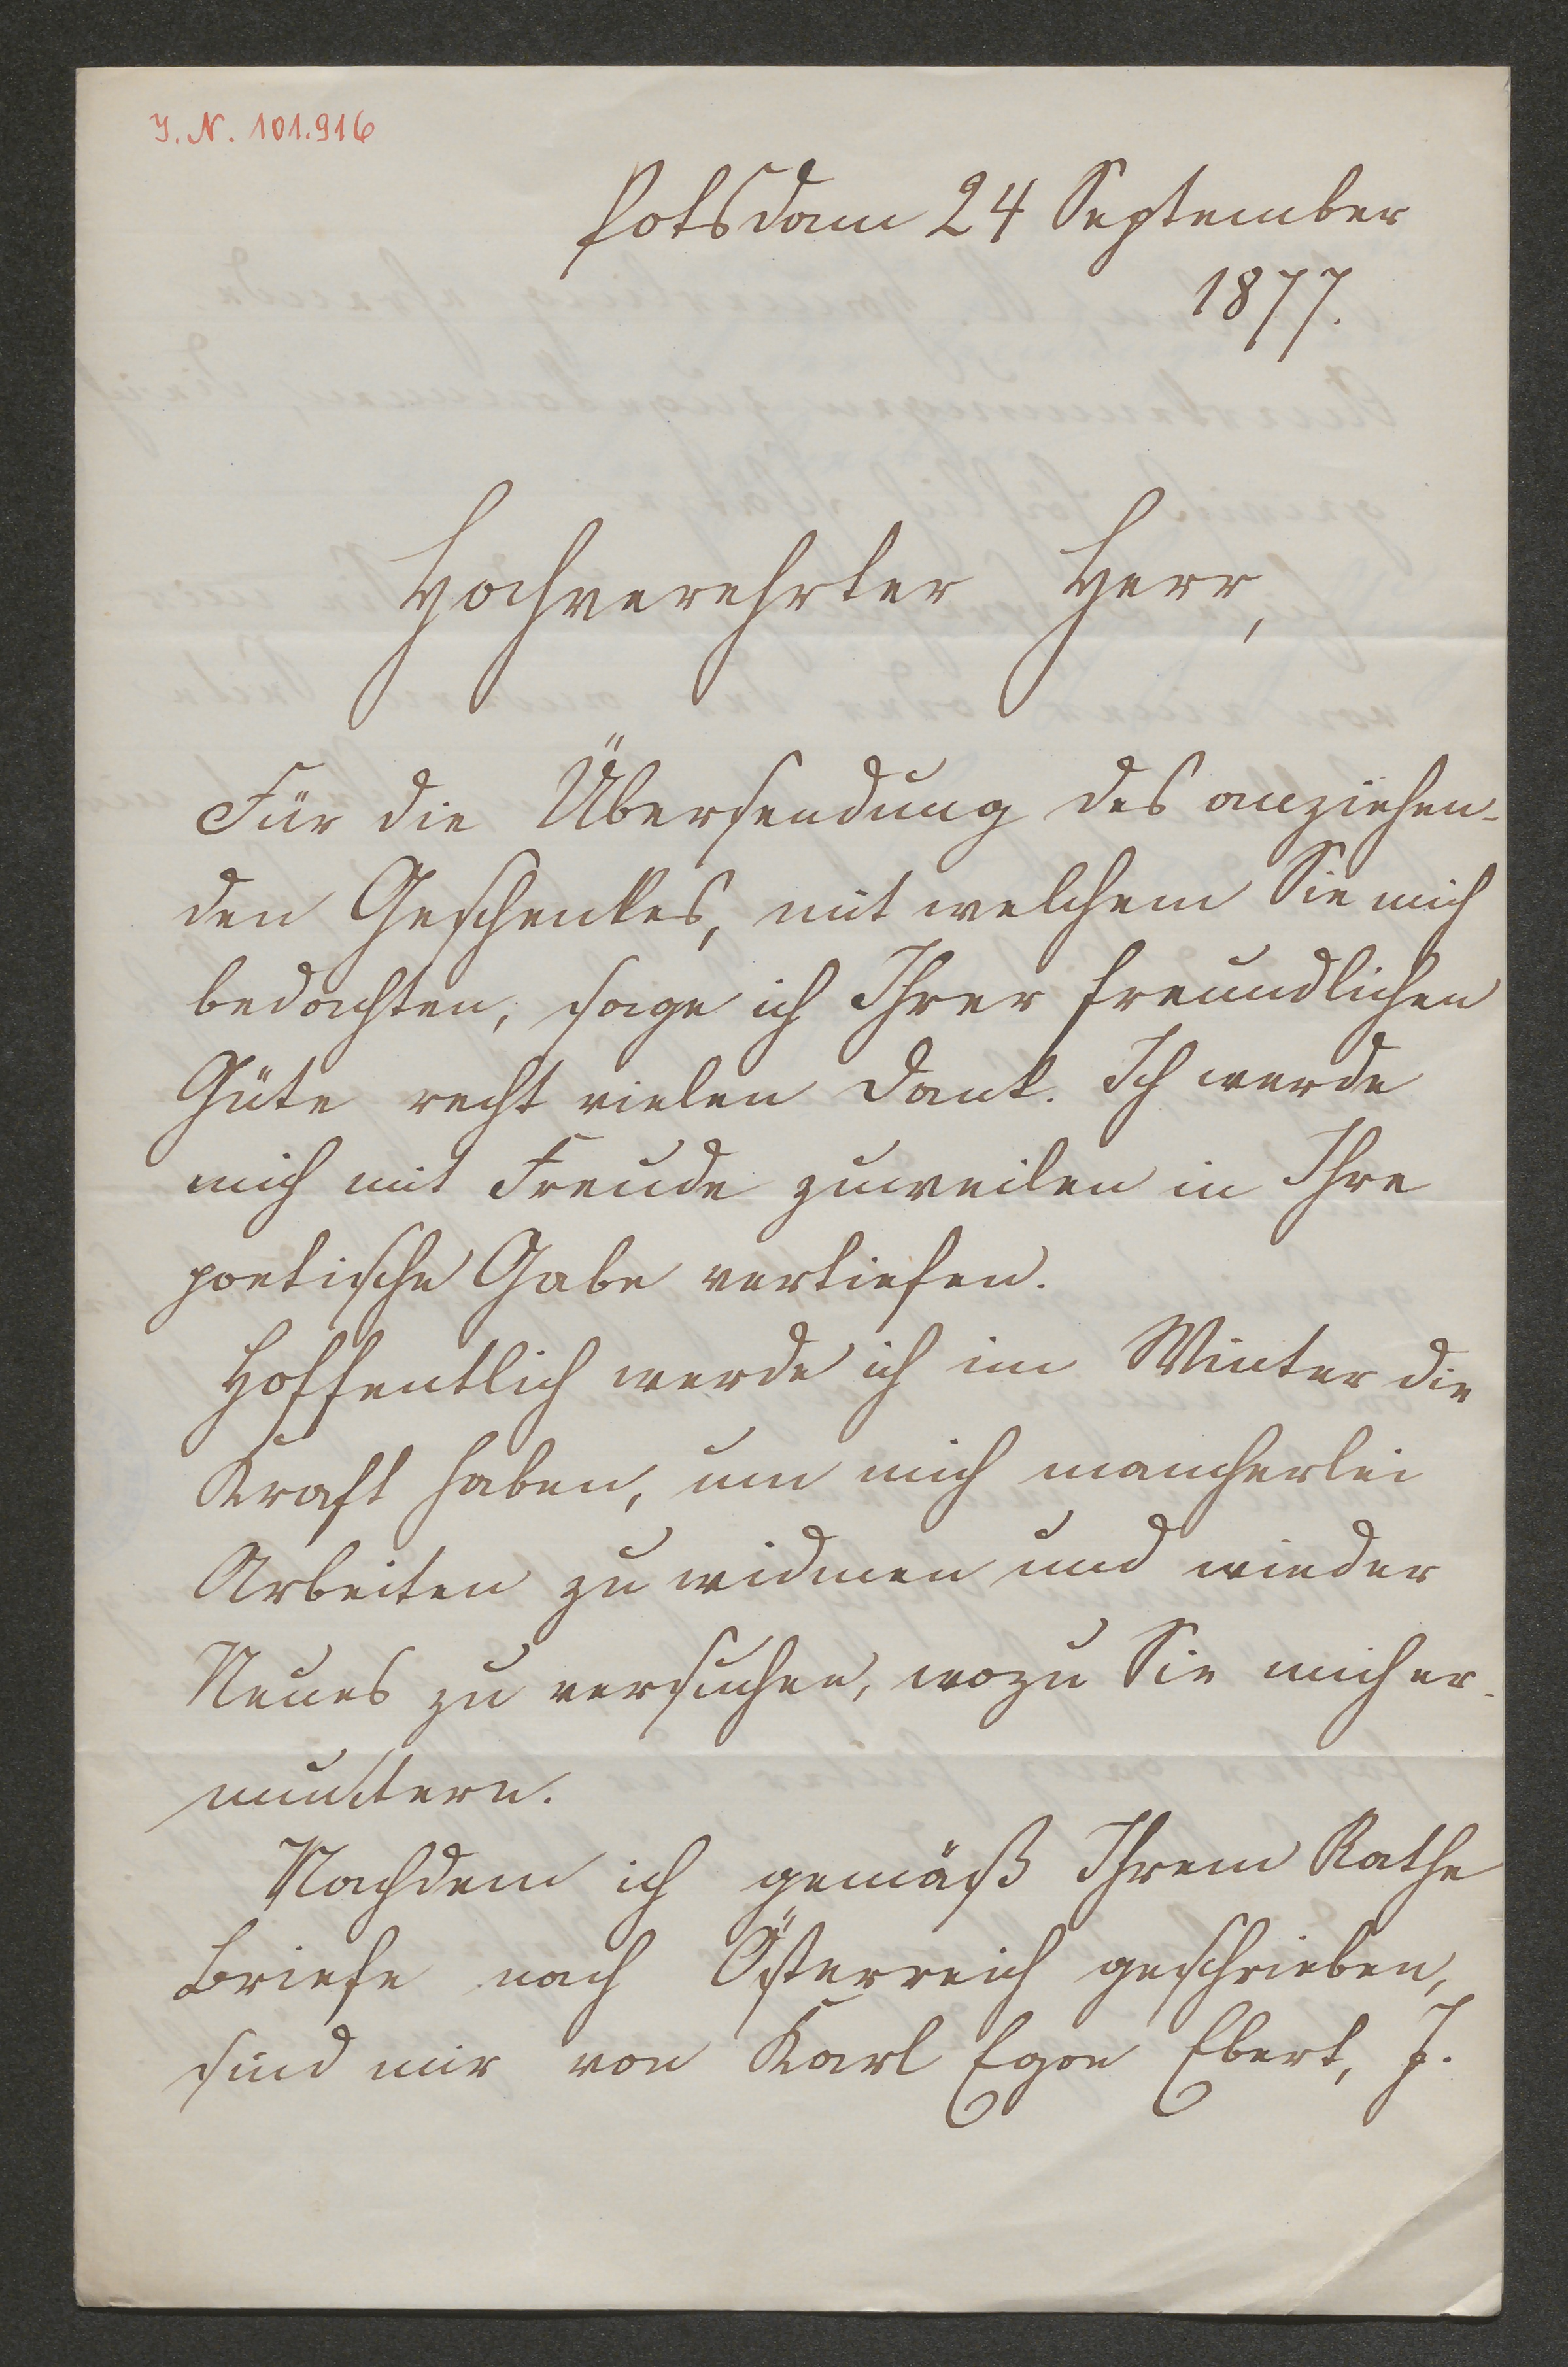 J. N. 101.916
Potsdam 24 September
1877.
Hochverehrter Herr,
Für die Übersendung des anziehen-
den Geschenkes, mit welchem Sie mich
bedachten, sage ich Ihrer freundlichen
Güte recht vielen Dank. Ich werde
mich mit Freude zuweilen in Ihre
poetische Gabe vertiefen.
Hoffentlich werde ich im Winter die
Kraft haben, um mich mancherlei
Arbeiten zu widmen und wieder
Neues zu versuchen, wozu Sie mich er-
muntern.
Nachdem ich gemäß Ihrem Rathe
Briefe nach Österreich geschrieben,
sind mir von Karl Egon Ebert, J.